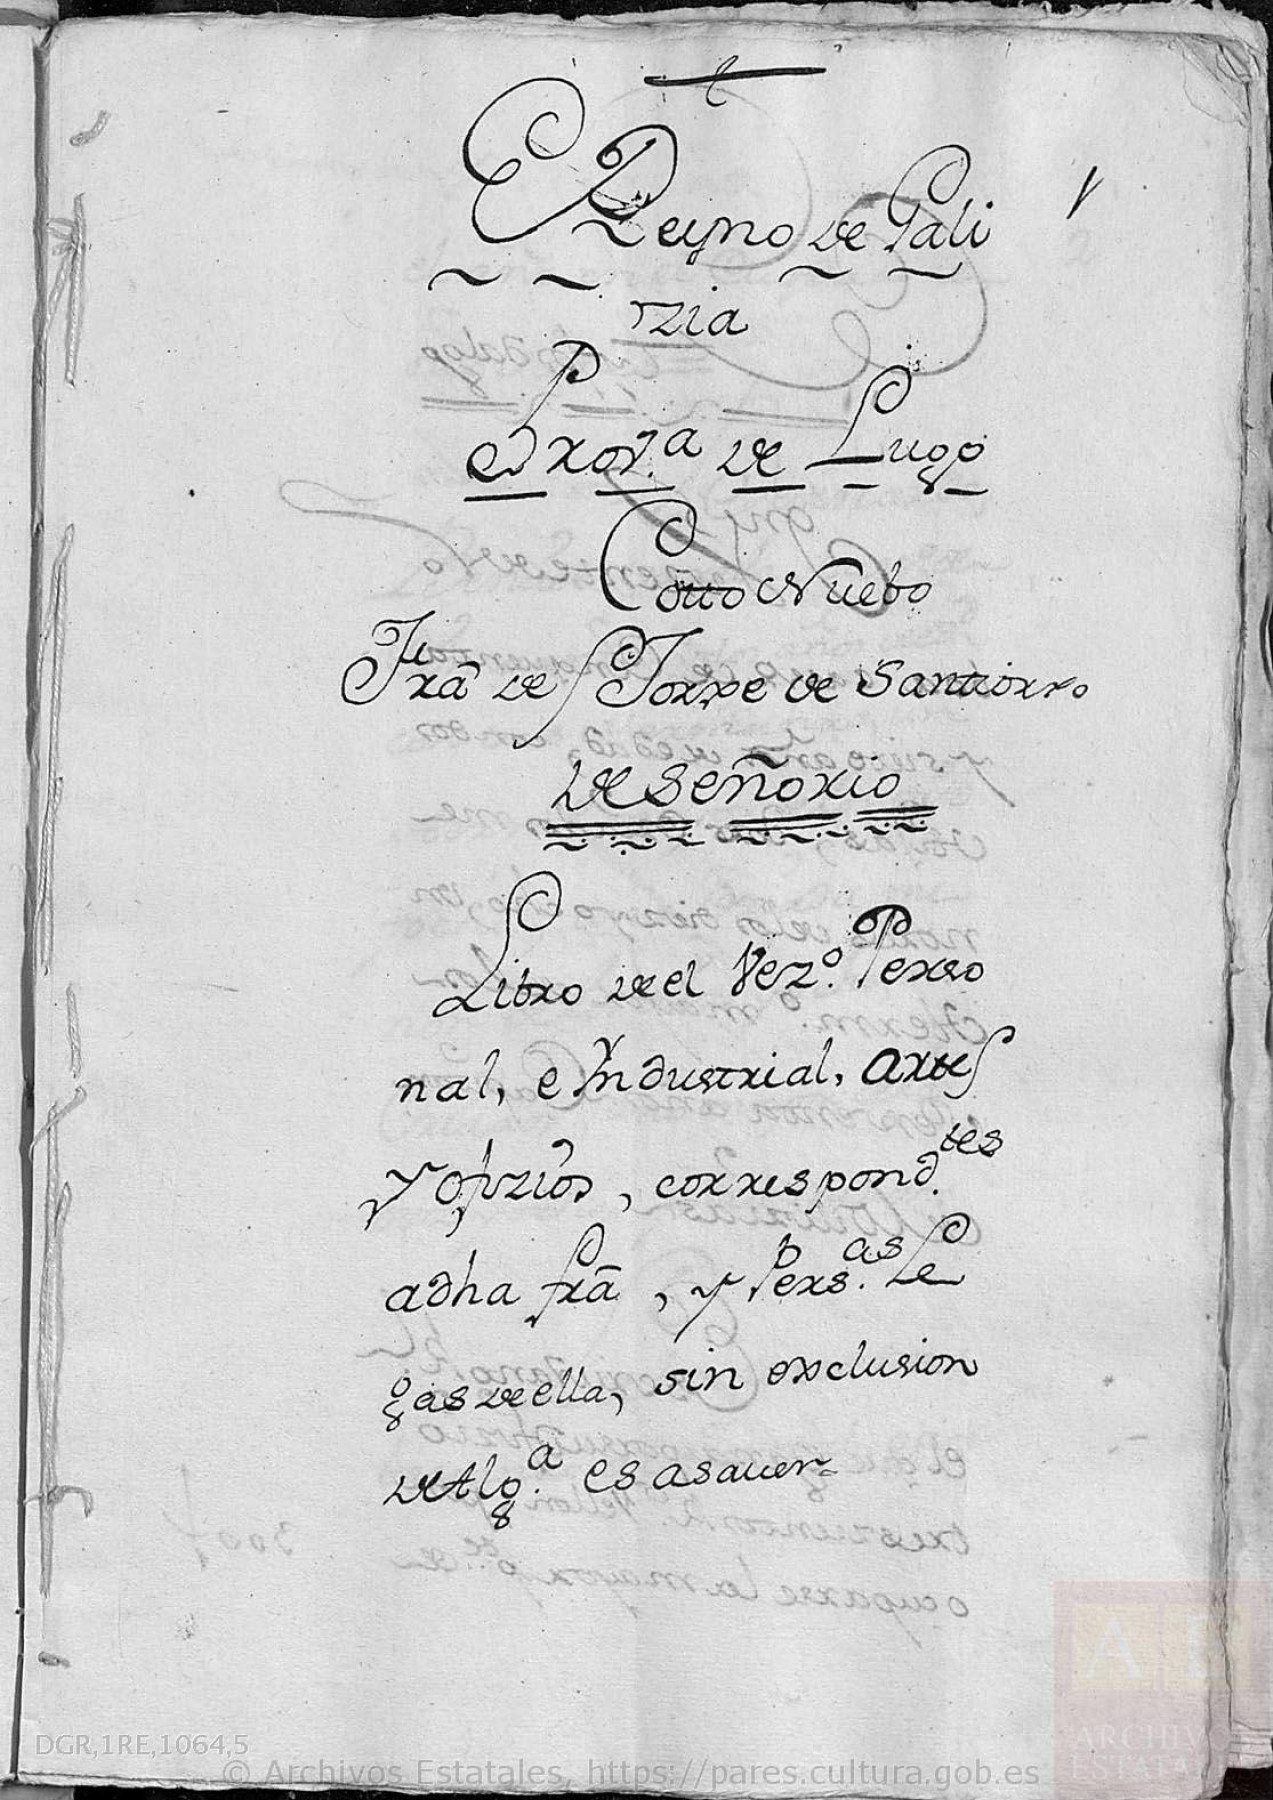 Reyno de Gali
zia
Prov.ª de Lugo
Cotto Nuebo
Frã de S Jorxe de Santiorxo
de Señorio
Libro de el Vez.º Perso
nal, e Yndustrial, Artes
y ofizios, correspond.tes
adha frã, y Pers.as Le
gas de ella, sin exclusion
de Alg.ª es asaver=
DGR,1RE,1064,5
© Archivos Estatales, https://pares.cultura.gob.es
AE
ARCHIVOS
ESTATALES